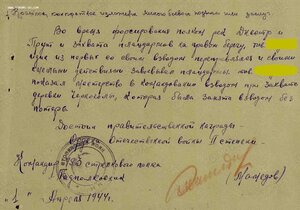 Краткое, конкретное изложение личного боевого подвига или заслуг.
Во время форсирования полком рек Днестр и
Прут и захвата плацдармов на правом берегу, тов.
один из первых со своим взводом переправлялся и своими
смелыми действиями завоевывал плацдармы, тов.
показал простоту в командовании взводом при захвате
деревни, которая была занята взводом без
потерь.
Достоин правительственной награды
Отечественной войны II степени.
Командир стрелкового полка
Подполковник
" 1 " Апреля 1944 г.